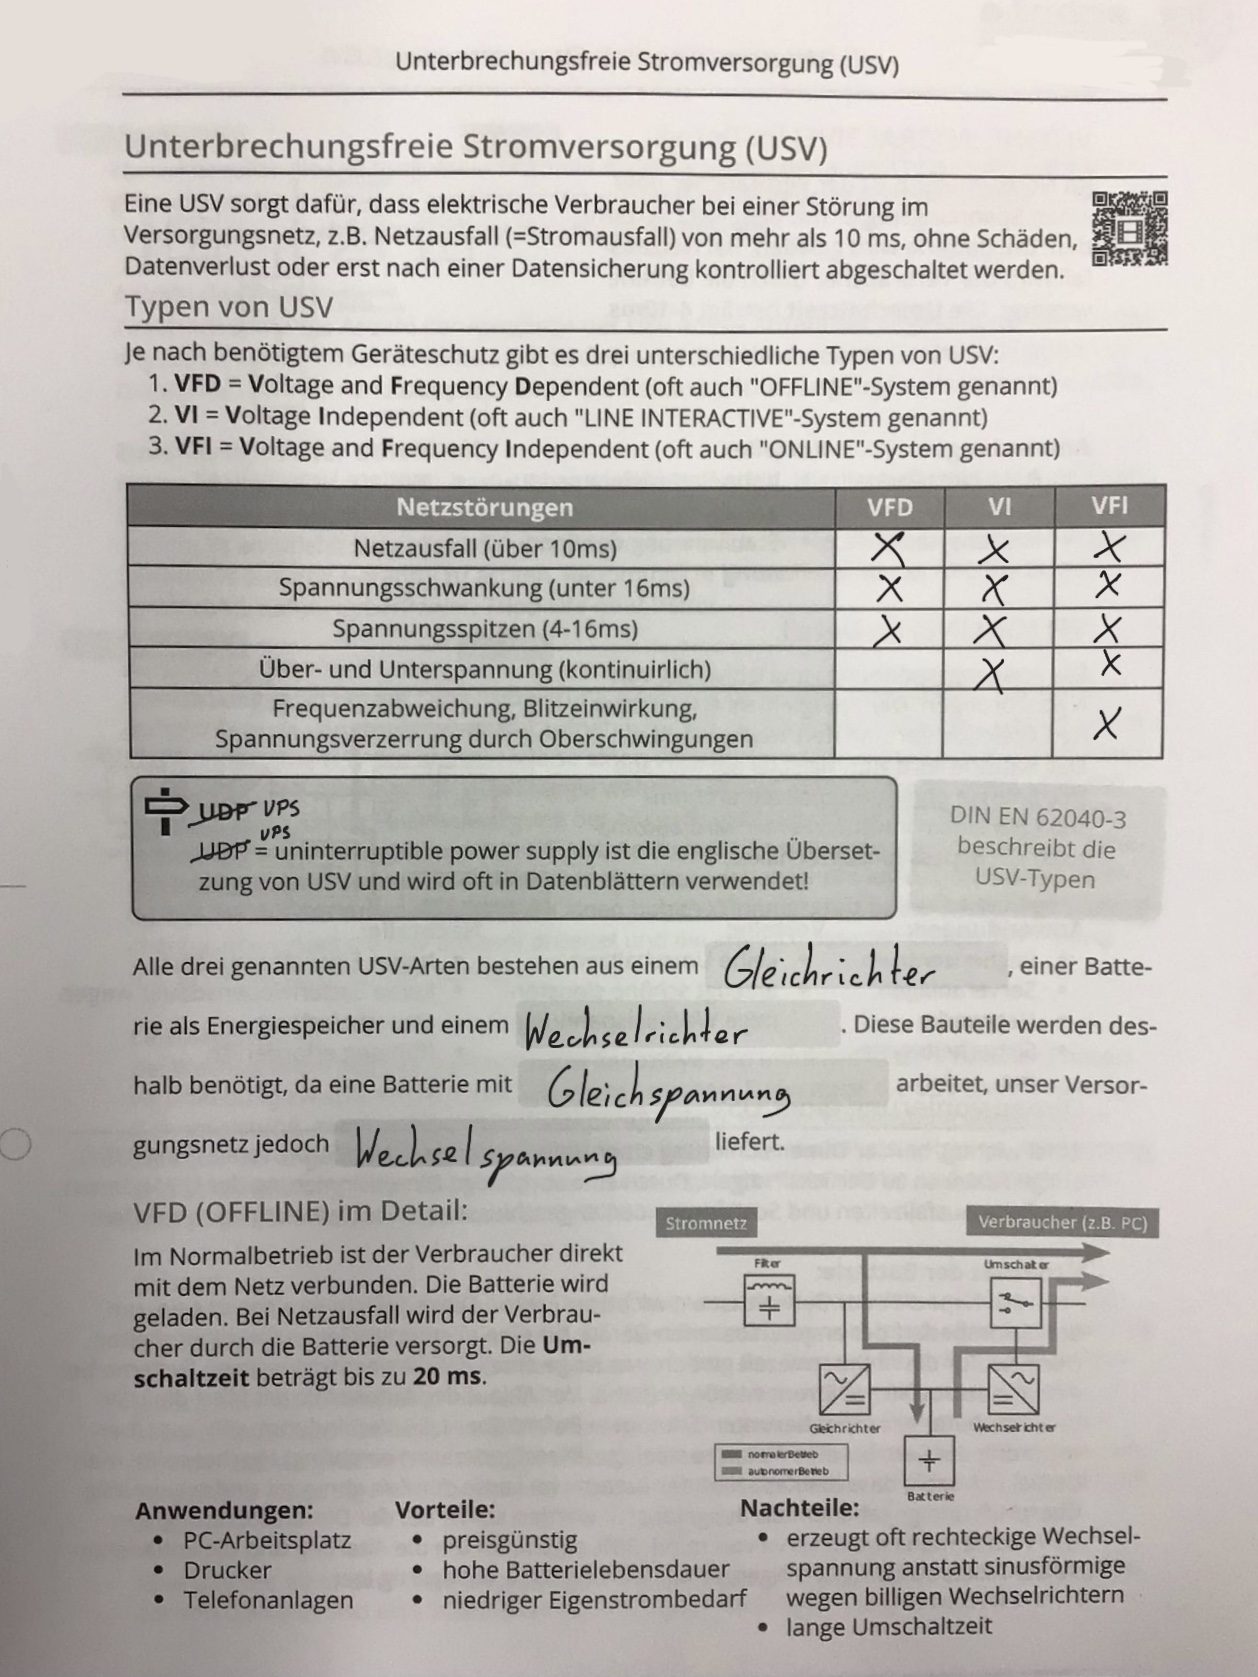 Unterbrechungsfreie Stromversorgung (USV)
Unterbrechungsfreie Stromversorgung (USV)
Eine USV sorgt dafür, dass elektrische Verbraucher bei einer Störung im
Versorgungsnetz, z.B. Netzausfall (=Stromausfall) von mehr als 10 ms, ohne Schäden,
Datenverlust oder erst nach einer Datensicherung kontrolliert abgeschaltet werden.
Typen von USV
Je nach benötigtem Geräteschutz gibt es drei unterschiedliche Typen von USV:
1. VFD = Voltage and Frequency Dependent (oft auch "OFFLINE"-System genannt)
2. VI = Voltage Independent (oft auch "LINE INTERACTIVE"-System genannt)
3. VFI = Voltage and Frequency Independent (oft auch "ONLINE"-System genannt)
Netzstörungen VFD VI VFI
Netzausfall (über 10ms) X X X
Spannungsschwankung (unter 16ms) X X X
Spannungsspitzen (4-16ms) X X X
Über- und Unterspannung (kontinuirlich) X X
Frequenzabweichung, Blitzeinwirkung,
Spannungsverzerrung durch Oberschwingungen X
UDP VPS
VPS
UDP = uninterruptible power supply ist die englische Überset-
zung von USV und wird oft in Datenblättern verwendet!
DIN EN 62040-3
beschreibt die
USV-Typen
Alle drei genannten USV-Arten bestehen aus einem Gleichrichter, einer Batte-
rie als Energiespeicher und einem Wechselrichter. Diese Bauteile werden des-
halb benötigt, da eine Batterie mit Gleichspannung arbeitet, unser Versor-
gungsnetz jedoch Wechselspannung liefert.
VFD (OFFLINE) im Detail:
Im Normalbetrieb ist der Verbraucher direkt
mit dem Netz verbunden. Die Batterie wird
geladen. Bei Netzausfall wird der Verbrau-
cher durch die Batterie versorgt. Die Um-
schaltzeit beträgt bis zu 20 ms.
Stromnetz Verbraucher (z.B. PC)
Filter Umschalter
Gleichrichter Wechselrichter
normaler Betrieb
autonomer Betrieb
Batterie
Anwendungen:
• PC-Arbeitsplatz
• Drucker
• Telefonanlagen
Vorteile:
• preisgünstig
• hohe Batterielebensdauer
• niedriger Eigenstrombedarf
Nachteile:
• erzeugt oft rechteckige Wechsel-
spannung anstatt sinusförmige
wegen billigen Wechselrichtern
• lange Umschaltzeit